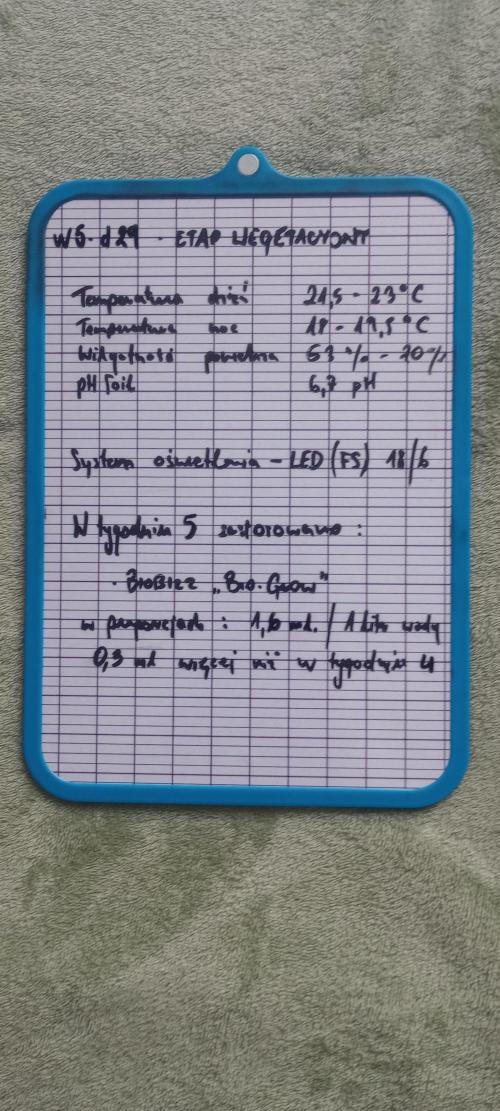 W5. d29 - ETAP WEGETACYJNY
Temperatura dzień 21,5 - 23°C
Temperatura noc 18 - 19,5°C
Wilgotność powietrza 63% - 70%
pH Soil 6,7 pH
System oświetlenia - LED (FS) 18/6
W tygodniu 5 zastosowano :
· BioBizz „Bio·Grow"
w proporcjach : 1,6 ml. / 1 litr wody
0,3 ml więcej niż w tygodniu 4